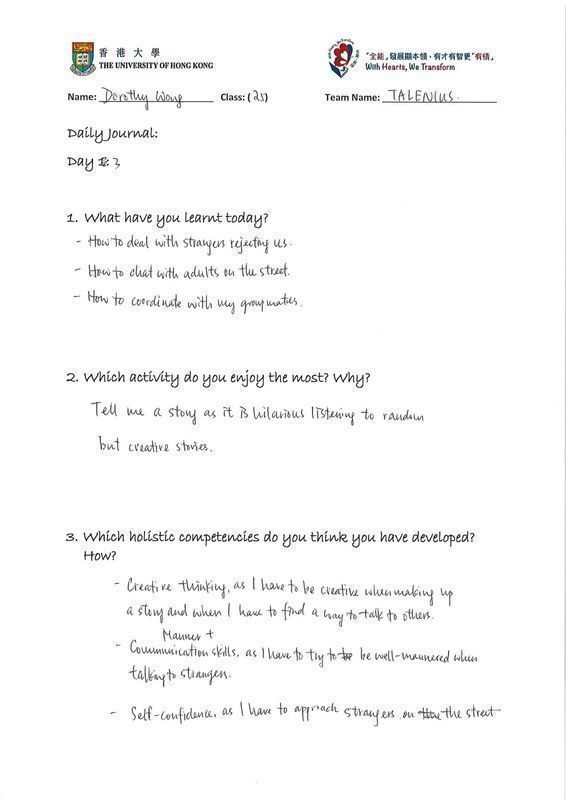 香 港 大 學
THE UNIVERSITY OF HONG KONG
"全能」發展顯本領，有才有智更"有情"
With Hearts, We Transform
Name: Dorothy Wong Class: (2J) Team Name: TALENIUS.
Daily Journal:
Day 3
1. What have you learnt today?
- How to deal with strangers rejecting us.
- How to chat with adults on the street.
- How to coordinate with my groupmates.
2. Which activity do you enjoy the most? Why?
Tell me a story as it is hilarious listening to random
but creative stories.
3. Which holistic competencies do you think you have developed?
How?
- Creative thinking, as I have to be creative when making up
a story and when I have to find a way to talk to others.
Manner +
- Communication skills, as I have to try to be well-mannered when
talking to strangers.
- Self-confidence, as I have to approach strangers on the street